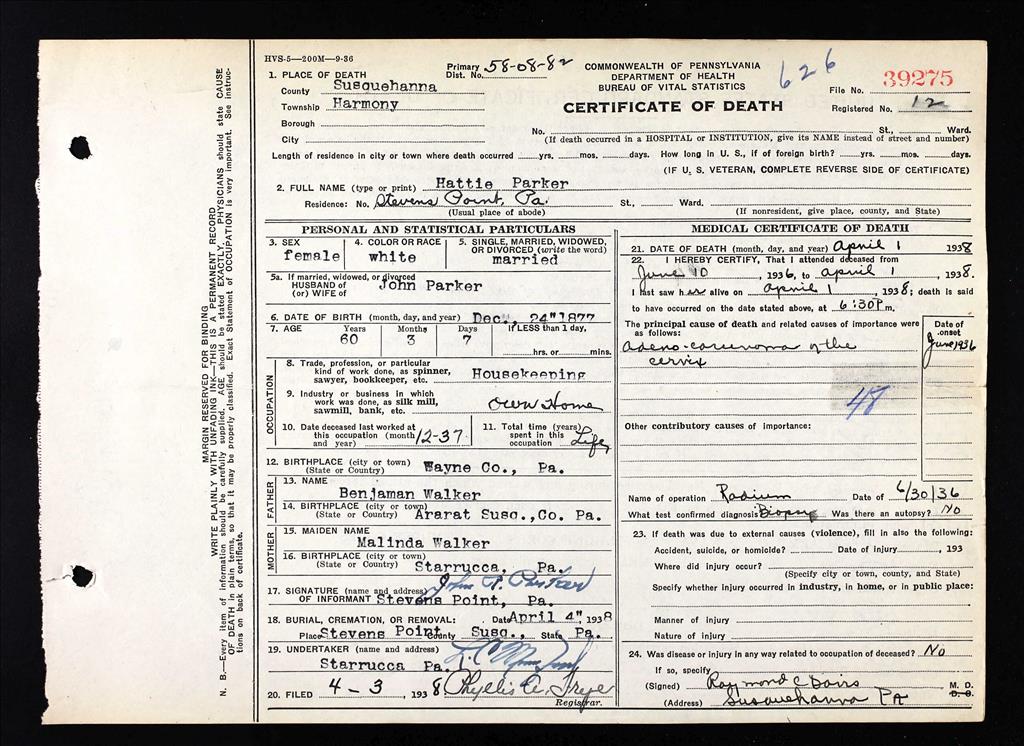 HVS-5—200M—9-36
Primary Dist. No. 58-08-82
COMMONWEALTH OF PENNSYLVANIA
DEPARTMENT OF HEALTH
BUREAU OF VITAL STATISTICS
CERTIFICATE OF DEATH
626
39275
File No.
Registered No. 12
1. PLACE OF DEATH
County Susquehanna
Township Harmony
Borough
City
No. St., Ward.
(If death occurred in a HOSPITAL or INSTITUTION, give its NAME instead of street and number)
Length of residence in city or town where death occurred yrs. mos. days. How long in U. S., if of foreign birth? yrs. mos. days.
(IF U. S. VETERAN, COMPLETE REVERSE SIDE OF CERTIFICATE)
2. FULL NAME (type or print) Hattie Parker
Residence: No. Stevens Point, Pa. St., Ward.
(Usual place of abode) (If nonresident, give place, county, and State)
PERSONAL AND STATISTICAL PARTICULARS
3. SEX female
4. COLOR OR RACE white
5. SINGLE, MARRIED, WIDOWED, OR DIVORCED (write the word) married
5a. If married, widowed, or divorced
HUSBAND of
(or) WIFE of John Parker
6. DATE OF BIRTH (month, day, and year) Dec., 24" 1877
7. AGE Years 60 Months 3 Days 7 If LESS than 1 day, hrs. or mins.
OCCUPATION
8. Trade, profession, or particular kind of work done, as spinner, sawyer, bookkeeper, etc. Housekeeping
9. Industry or business in which work was done, as silk mill, sawmill, bank, etc. Own Home
10. Date deceased last worked at this occupation (month and year) 12-37
11. Total time (years) spent in this occupation Life
12. BIRTHPLACE (city or town) Wayne Co., Pa.
(State or Country)
FATHER
13. NAME Benjaman Walker
14. BIRTHPLACE (city or town) Ararat Susq.,Co. Pa.
(State or Country)
MOTHER
15. MAIDEN NAME Malinda Walker
16. BIRTHPLACE (city or town) Starrucca, Pa.
(State or Country)
17. SIGNATURE (name and address) John R. Parker
OF INFORMANT Stevens Point, Pa.
18. BURIAL, CREMATION, OR REMOVAL: Date April 4" 1938
Place Stevens Point County Susq., State Pa.
19. UNDERTAKER (name and address)
Starrucca Pa.
20. FILED 4-3, 1938 Phyllis A. Frye
Registrar.
MEDICAL CERTIFICATE OF DEATH
21. DATE OF DEATH (month, day, and year) April 1 1938
22. I HEREBY CERTIFY, That I attended deceased from
June 10, 1936, to April 1, 1938.
I last saw her alive on April 1, 1938; death is said
to have occurred on the date stated above, at 6:30 P m.
The principal cause of death and related causes of importance were as follows:
Date of onset
Adeno-carcinoma of the
cervix
June 1936
48
Other contributory causes of importance:
Name of operation Radium Date of 6/30/36
What test confirmed diagnosis Biopsy Was there an autopsy? No
23. If death was due to external causes (violence), fill in also the following:
Accident, suicide, or homicide? Date of injury, 193
Where did injury occur?
(Specify city or town, county, and State)
Specify whether injury occurred in industry, in home, or in public place:
Manner of injury
Nature of injury
24. Was disease or injury in any way related to occupation of deceased? No
If so, specify
(Signed) Raymond C Davis M. D.
D. O.
(Address) Susquehanna PA
MARGIN RESERVED FOR BINDING
WRITE PLAINLY WITH UNFADING INK—THIS IS A PERMANENT RECORD
N. B.—Every item of information should be carefully supplied. AGE should be stated EXACTLY. PHYSICIANS should state CAUSE
OF DEATH in plain terms, so that it may be properly classified. Exact Statement of OCCUPATION is very important. See instruc-
tions on back of certificate.